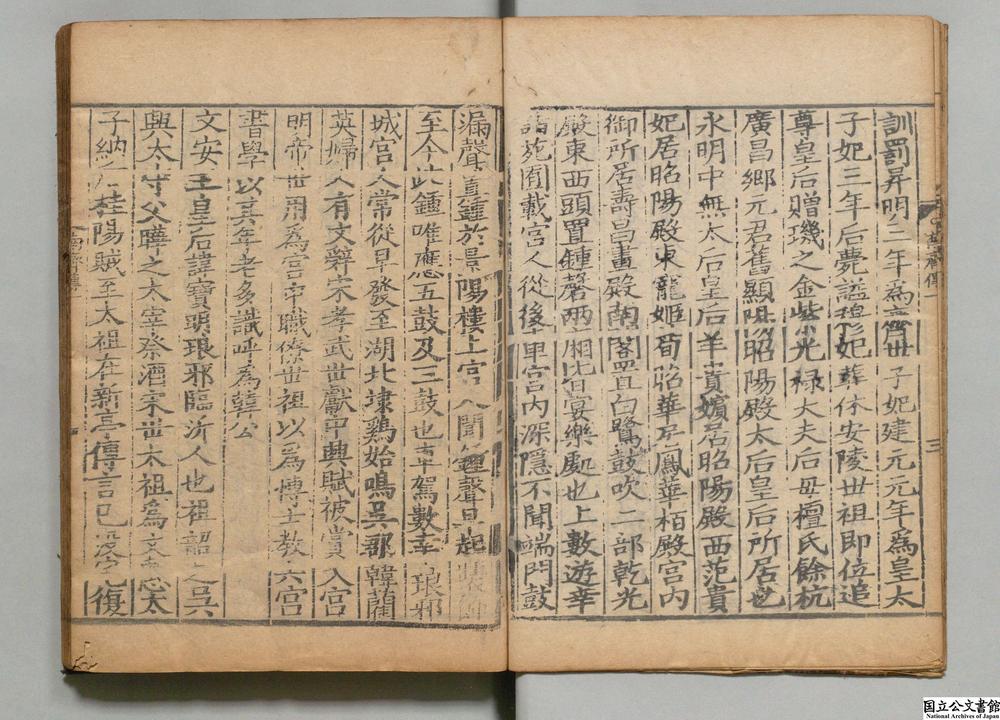 訓罰昇明二年為齊世子妃建元元年為皇太
子妃三年后薨謚穆妃葬休安陵世祖即位追
尊皇后贈璣之金紫光祿大夫后母檀氏餘杭
廣昌鄉元君舊顯陽昭陽殿太后皇后所居也
永明中無太后皇后羊貴嬪居昭陽殿西范貴
妃居昭陽殿東寵姬荀昭華居鳳華栢殿宮內
御所居壽昌畫殿南閣置白鷺鼓吹二部乾光
殿東西頭置鍾磬兩廂皆宴樂處也上數遊幸
諸苑囿載宮人從後車宮內深隱不聞端門鼓
漏聲置鍾於景陽樓上宮人聞鍾聲早起裝飾
至今此鍾唯應五鼓及三鼓也車駕數幸琅邪
城宮人常從早發至湖北埭鷄始鳴吳郡韓藺
英婦人有文辭宋孝武世獻中興賦被賞入宮
明帝世用為宮中職僚世祖以為博士教六宮
書學以其年老多識呼為韓公
文安王皇后諱寶明琅邪臨沂人也祖韶之吳
興太守父曄之太宰祭酒宋世太祖為文惠太
子納后桂陽賊至太祖在新亭傳言已沒宅復
三
国立公文書館
National Archives of Japan